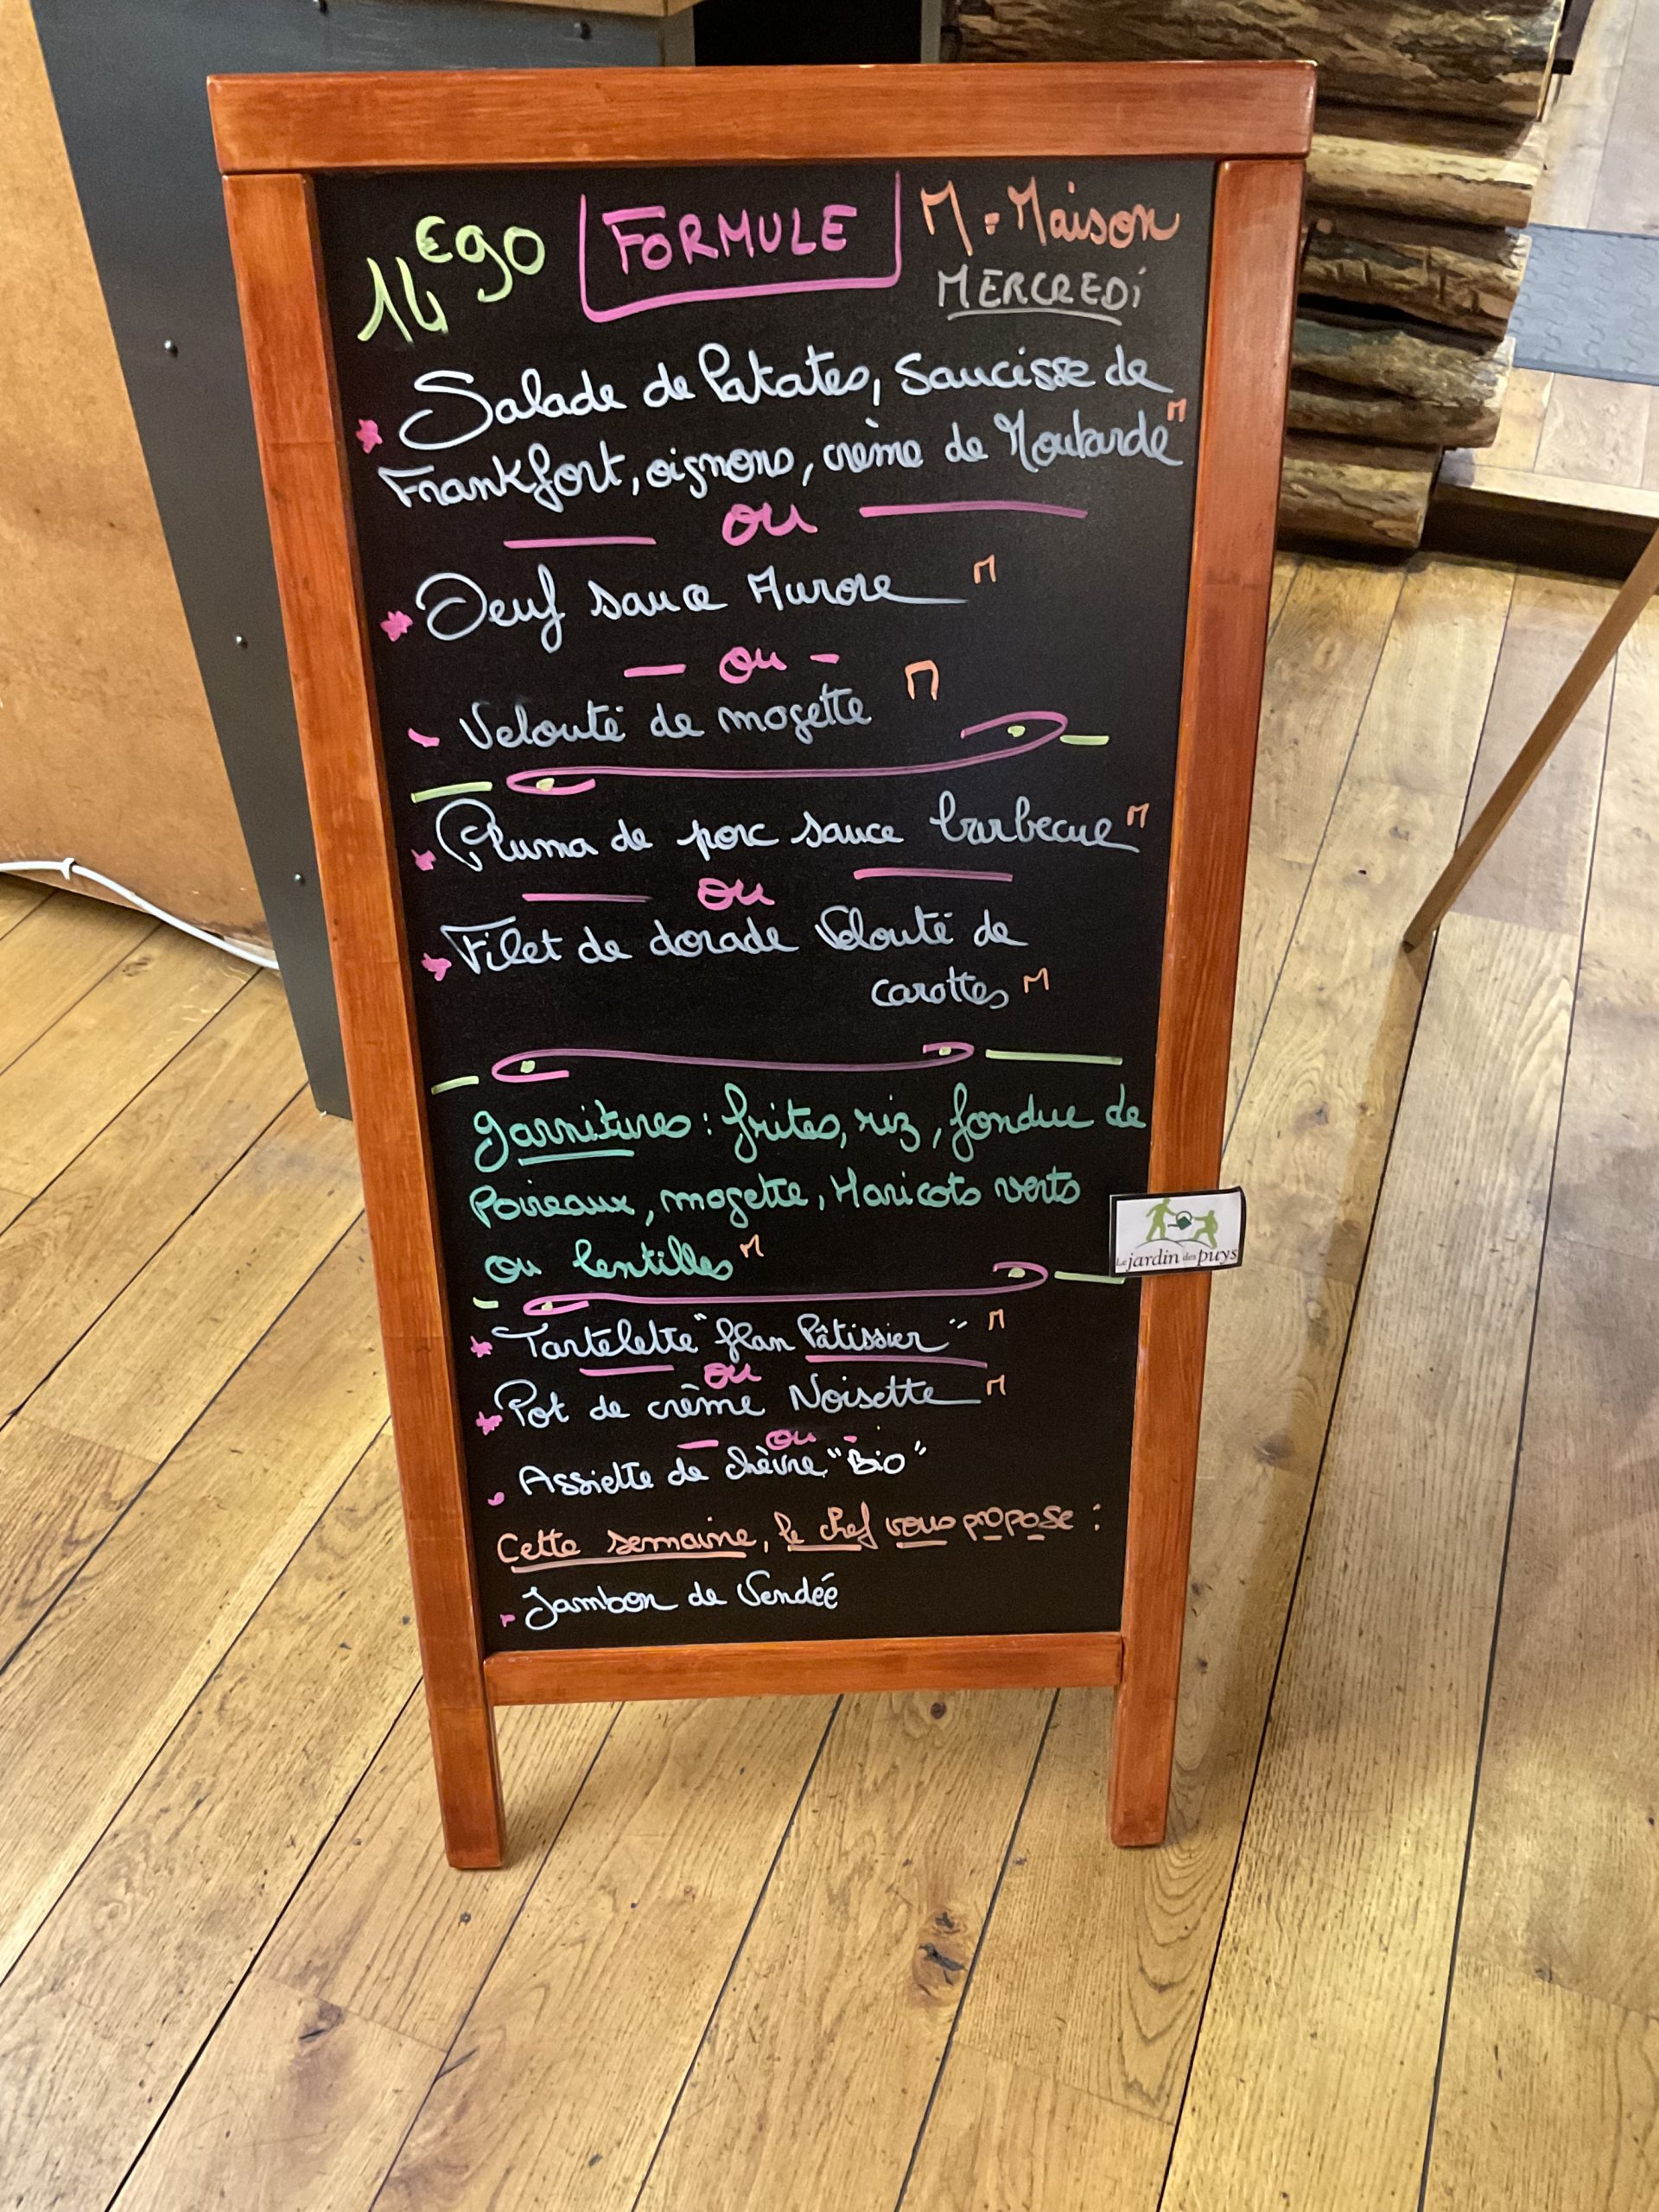 14€90 FORMULE M = Maison
MERCREDi
Salade de Patates, Saucisse de
Frankfort, oignons, crème de Moutarde M
ou
Oeuf sauce Aurore M
ou
Velouté de mogette M
Pluma de porc sauce barbecue M
ou
Filet de dorade Velouté de
carottes M
Garnitures : frites, riz, fondue de
Poireaux, mogette, Haricots verts
ou lentilles M
Le jardin des puys
Tartelette "flan Pâtissier" M
ou
Pot de crème Noisette M
ou
Assiette de chèvre "Bio"
Cette semaine, le chef vous propose :
Jambon de Vendée